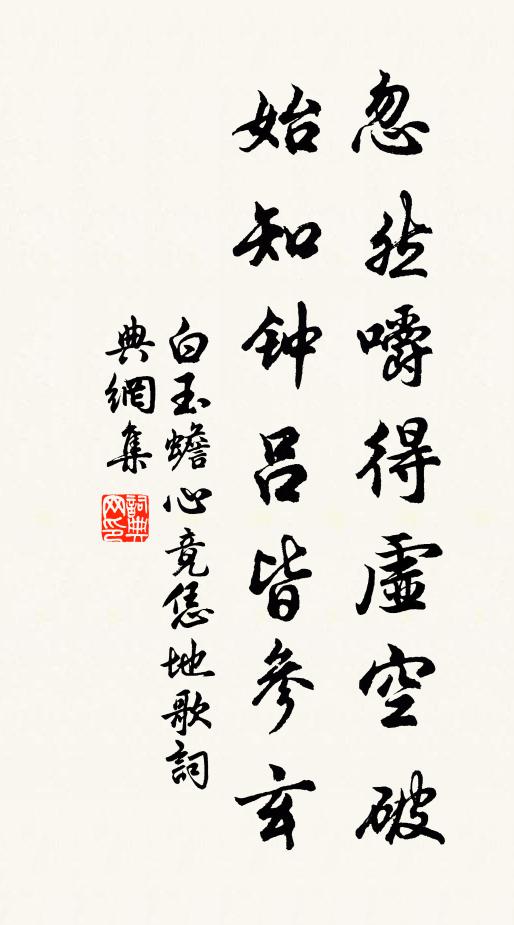 忽然嚼得虛空破
始知钟吕皆參玄
白玉蟾心竟恁地歌詞
典網集
詞典
网印